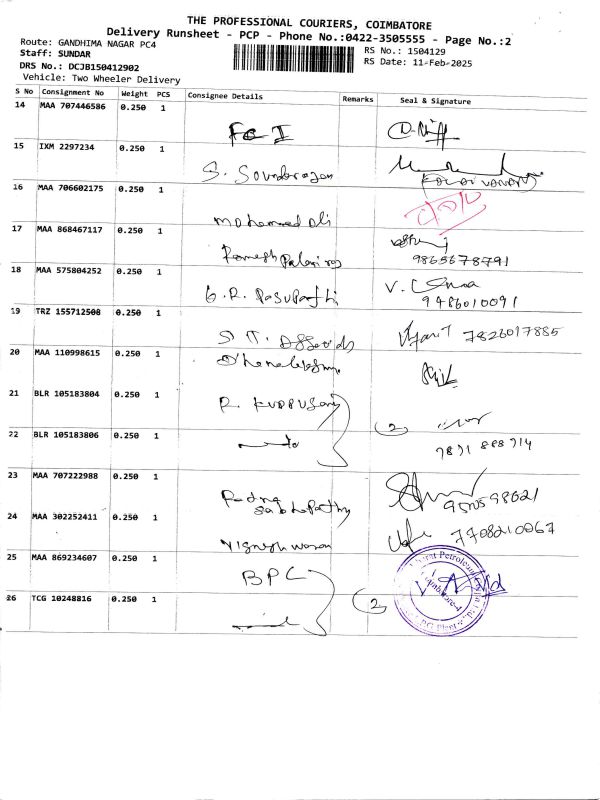 THE PROFESSIONAL COURIERS, COIMBATORE
Delivery Runsheet - PCP - Phone No.:0422-3505555 - Page No.:2
Route: GANDHIMA NAGAR PC4
RS No.: 1504129
Staff: SUNDAR
RS Date: 11-Feb-2025
DRS No.: DCJB150412902
Vehicle: Two Wheeler Delivery
S No Consignment No Weight PCS Consignee Details Remarks Seal & Signature
14 MAA 707446586 0.250 1
15 IXM 2297234 0.250 1
S. Soundarajan
16 MAA 706602175 0.250 1
Mohamed Ali
17 MAA 868467117 0.250 1
Ramesh Palani
9865678791
18 MAA 575804252 0.250 1
G.R. Pasupathi
9486010091
19 TRZ 155712508 0.250 1
7826017885
20 MAA 110998615 0.250 1
21 BLR 105183804 0.250 1
2
22 BLR 105183806 0.250 1
23 MAA 707222988 0.250 1
Padma
Sabhapathy
24 MAA 302252411 0.250 1
7708210067
Vignesh
25 MAA 869234607 0.250 1
BPC
26 TCG 10248816 0.250 1
2